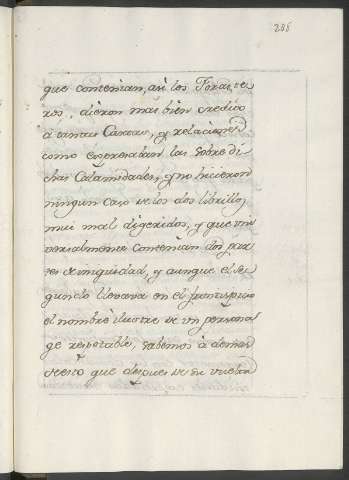 que contenian, asi los Foraste-
ros, dieron mas bien credito
à tantas Cartas, y relaciones
como expresaban las sobre di-
chas Calamidades, y no hicieron
ningun caso de los dos librillos
mui mal digeridos, y que uni-
versalmente contenian dos par-
tes de iniquidad, y aunque el se-
gundo llevava en el frontispicio
el nombre ilustre de un persona-
ge respetable, sabemos à demas
de esto que despues de su vuelta